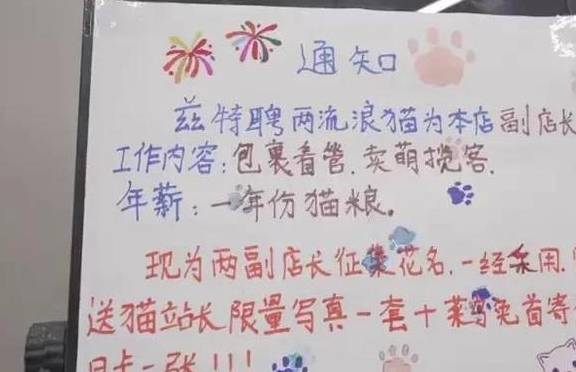 通知
兹特聘两流浪猫为本店副店长
工作内容:包裹看管、卖萌揽客.
年薪:一年份猫粮。
现为两副店长征集花名,一经采用,
送猫站长限量写真一套十菜鸟免首寄
日卡一张!!!